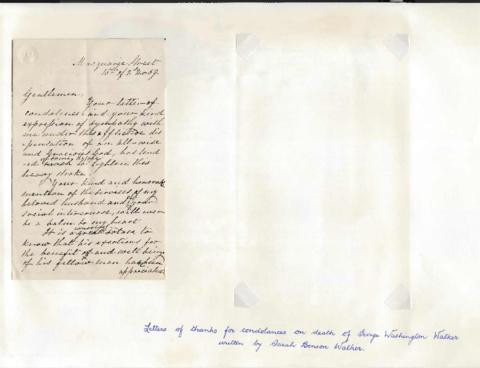 Macquarie Street
15th of 2nd mo 59.
Gentlemen,
Your letter of
condolence and your kind
expression of sympathy with
me under this afflictive dis
pensation of an all-wise
and Gracious God, has tend
ed in some degree to lighten this
heavy stroke.
Your kind and honorable
mention of the services of my
beloved husband and of your
social intercourse, will ever
be a balm to my heart
It is a great solace to
know that his exertions for
the benefit of and well being
of his fellow man has been
appreciated
Letters of thanks for condolances on death of George Washington Walker
written by Sarah Benson Walker.